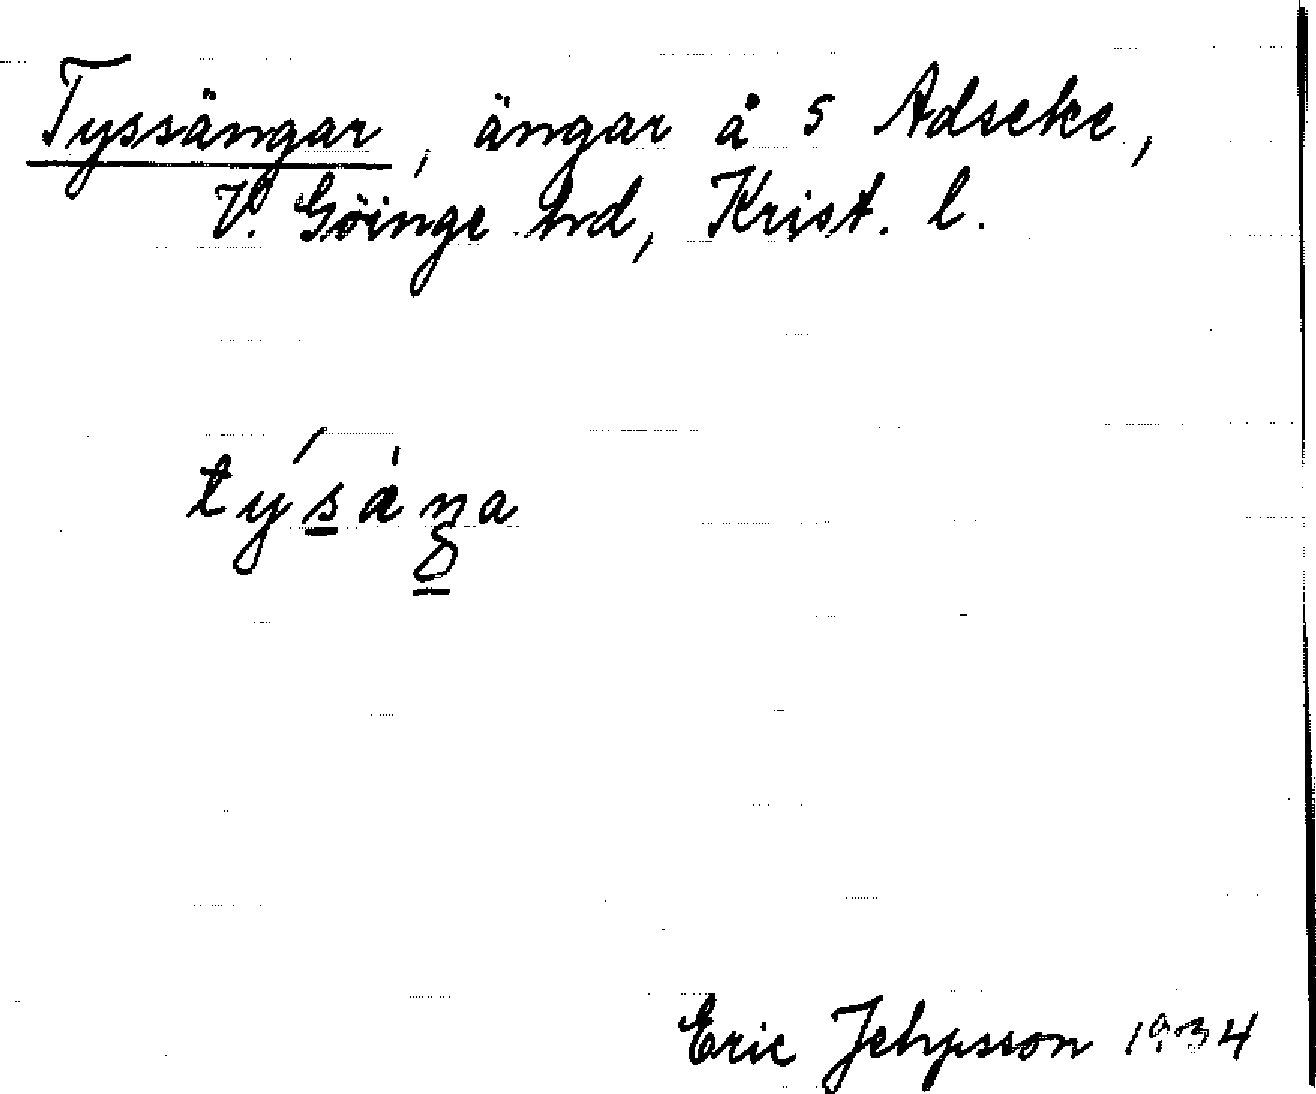 Tyssängar, ängar å 5 Adseke,
V. Göinge hrd, Krist. l.
Eric Jehpsson 1934